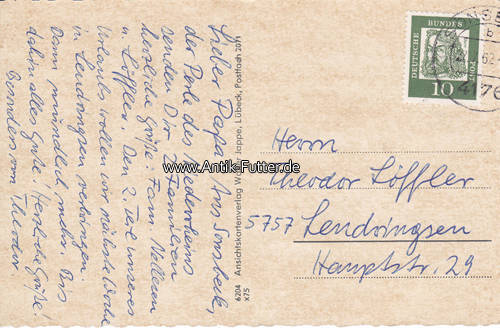 Lieber Papa! Aus Sonsbeck,
der Perle des Niederrheins
senden Dir 2 Familien
herzliche Grüße: Fam. Nelleen
u. Löffler. Den 2. Teil unseres
Urlaubs wollen wir nächste Woche
in Lendringsen verbringen.
Dann mündlich mehr. Bis
dahin alles Gute! Herzliche Grüße!
Besonders von Theodor
6204 Ansichtskartenverlag W. Joppe, Lübeck, Postfach 2071
x75
www.Antik-Futter.de
DEUTSCHE BUNDES POST
10
62
4176
Herrn
Theodor Löffler
5757 Lendringsen
Hauptstr. 29